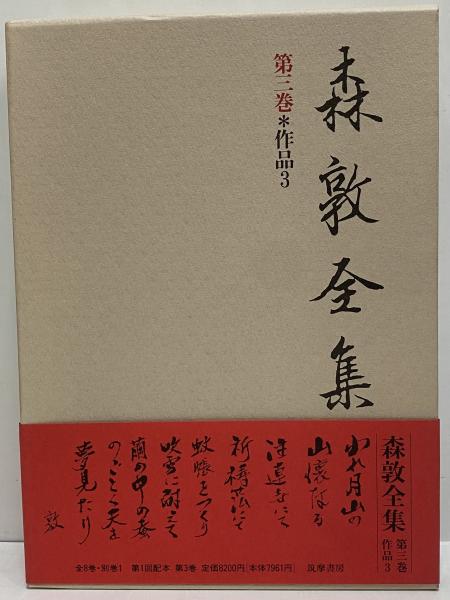 森敦全集
第三巻＊作品3
森敦全集 第三巻 作品3
われ月山の
山懐なる
注連寺にて
祈禱簿にて
蚊帳をつくり
吹雪に耐えて
繭の中の蚕
のごとく天を
夢見たり
敦
全8巻・別巻1 第1回配本 第3巻 定価8200円[本体7961円] 筑摩書房